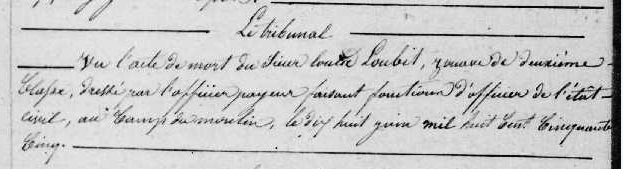 Le tribunal
Vu l'acte de mort du Sieur Louis Loubit, zouave de deuxième
Classe, dressé par l'officier payeur faisant fonctions d'officer de l'état-
civil, au Camp du moulin, le dix huit juin mil huit Cent Cinquante
Cinq.